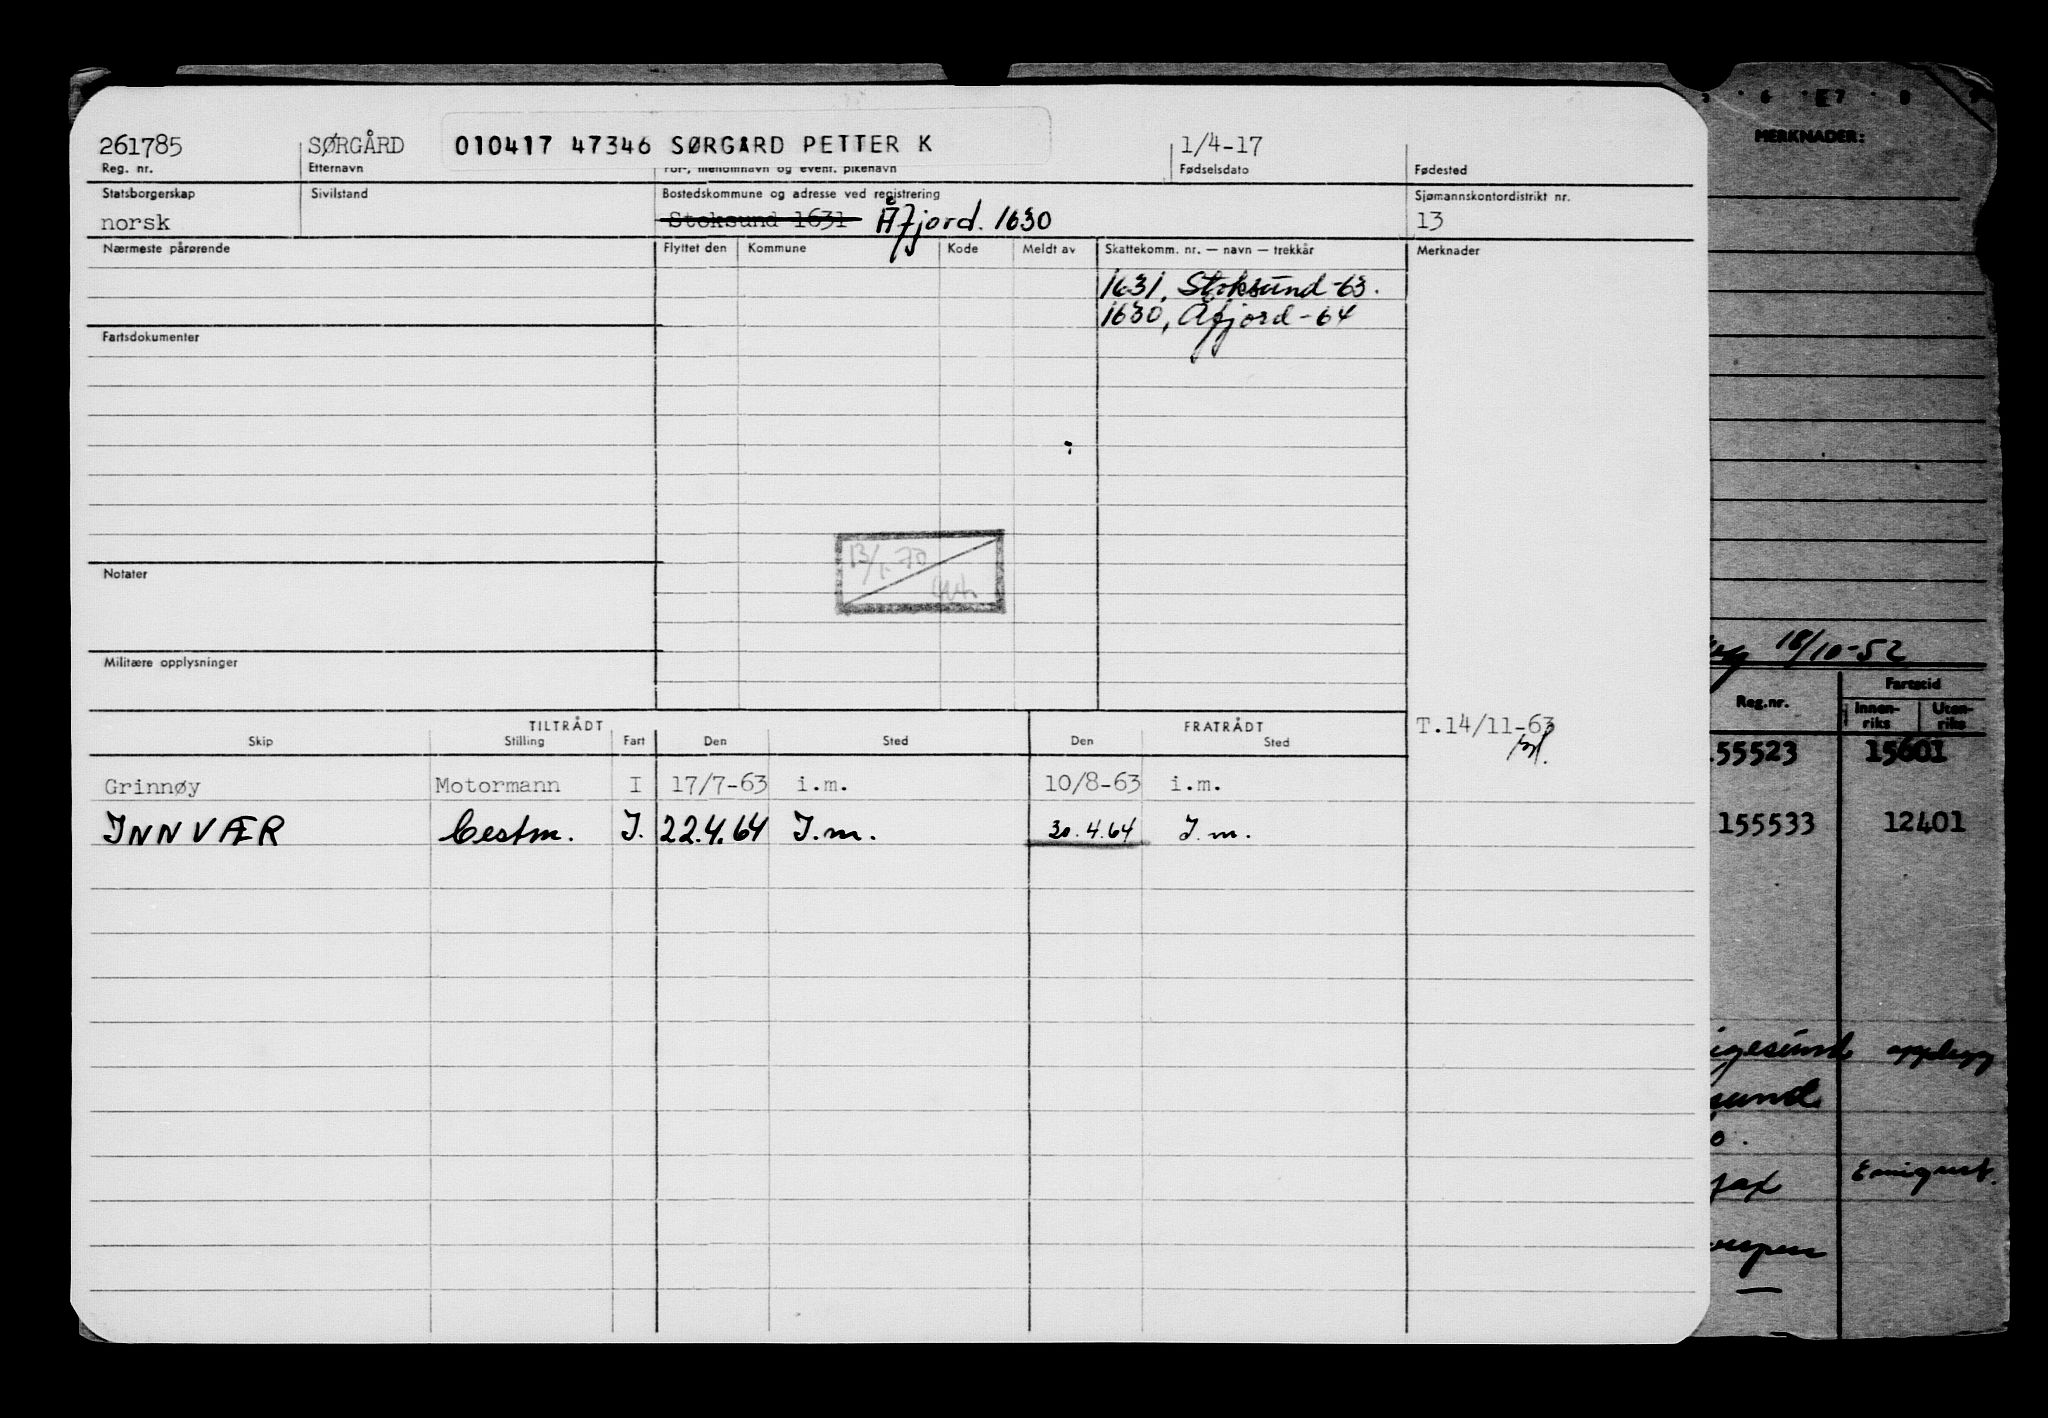 261785 SØRGÅRD 010417 47346 SØRGÅRD PETTER K 1/4-17
Reg. nr. Etternavn For-, mellomnavn og event. pikenavn Fødselsdato Fødested
Statsborgerskap Sivilstand Bostedskommune og adresse ved registrering Sjømannskontordistrikt nr.
norsk Stoksund 1631 Åfjord. 1630 13
Nærmeste pårørende Flyttet den Kommune Kode Meldt av Skattekomm. nr. — navn — trekkår Merknader
1631, Stoksund-63.
1630, Åfjord-64
Fartsdokumenter
13/1-70
Notater
Militære opplysninger
TILTRÅDT FRATRÅDT T.14/11-63
Skip Stilling Fart Den Sted Den Sted
Grinnøy Motormann I 17/7-63 i.m. 10/8-63 i.m.
INNVÆR Bestm. I. 22.4.64 I.m. 30.4.64 I.m.
6 7 8
MERKNADER:
18/10-52
Reg.nr. Fartstid
Innen-riks Uten-riks
55523 15601
155533 12401
igesund opplegg
sund
o.
fax Emigrant.
werpen